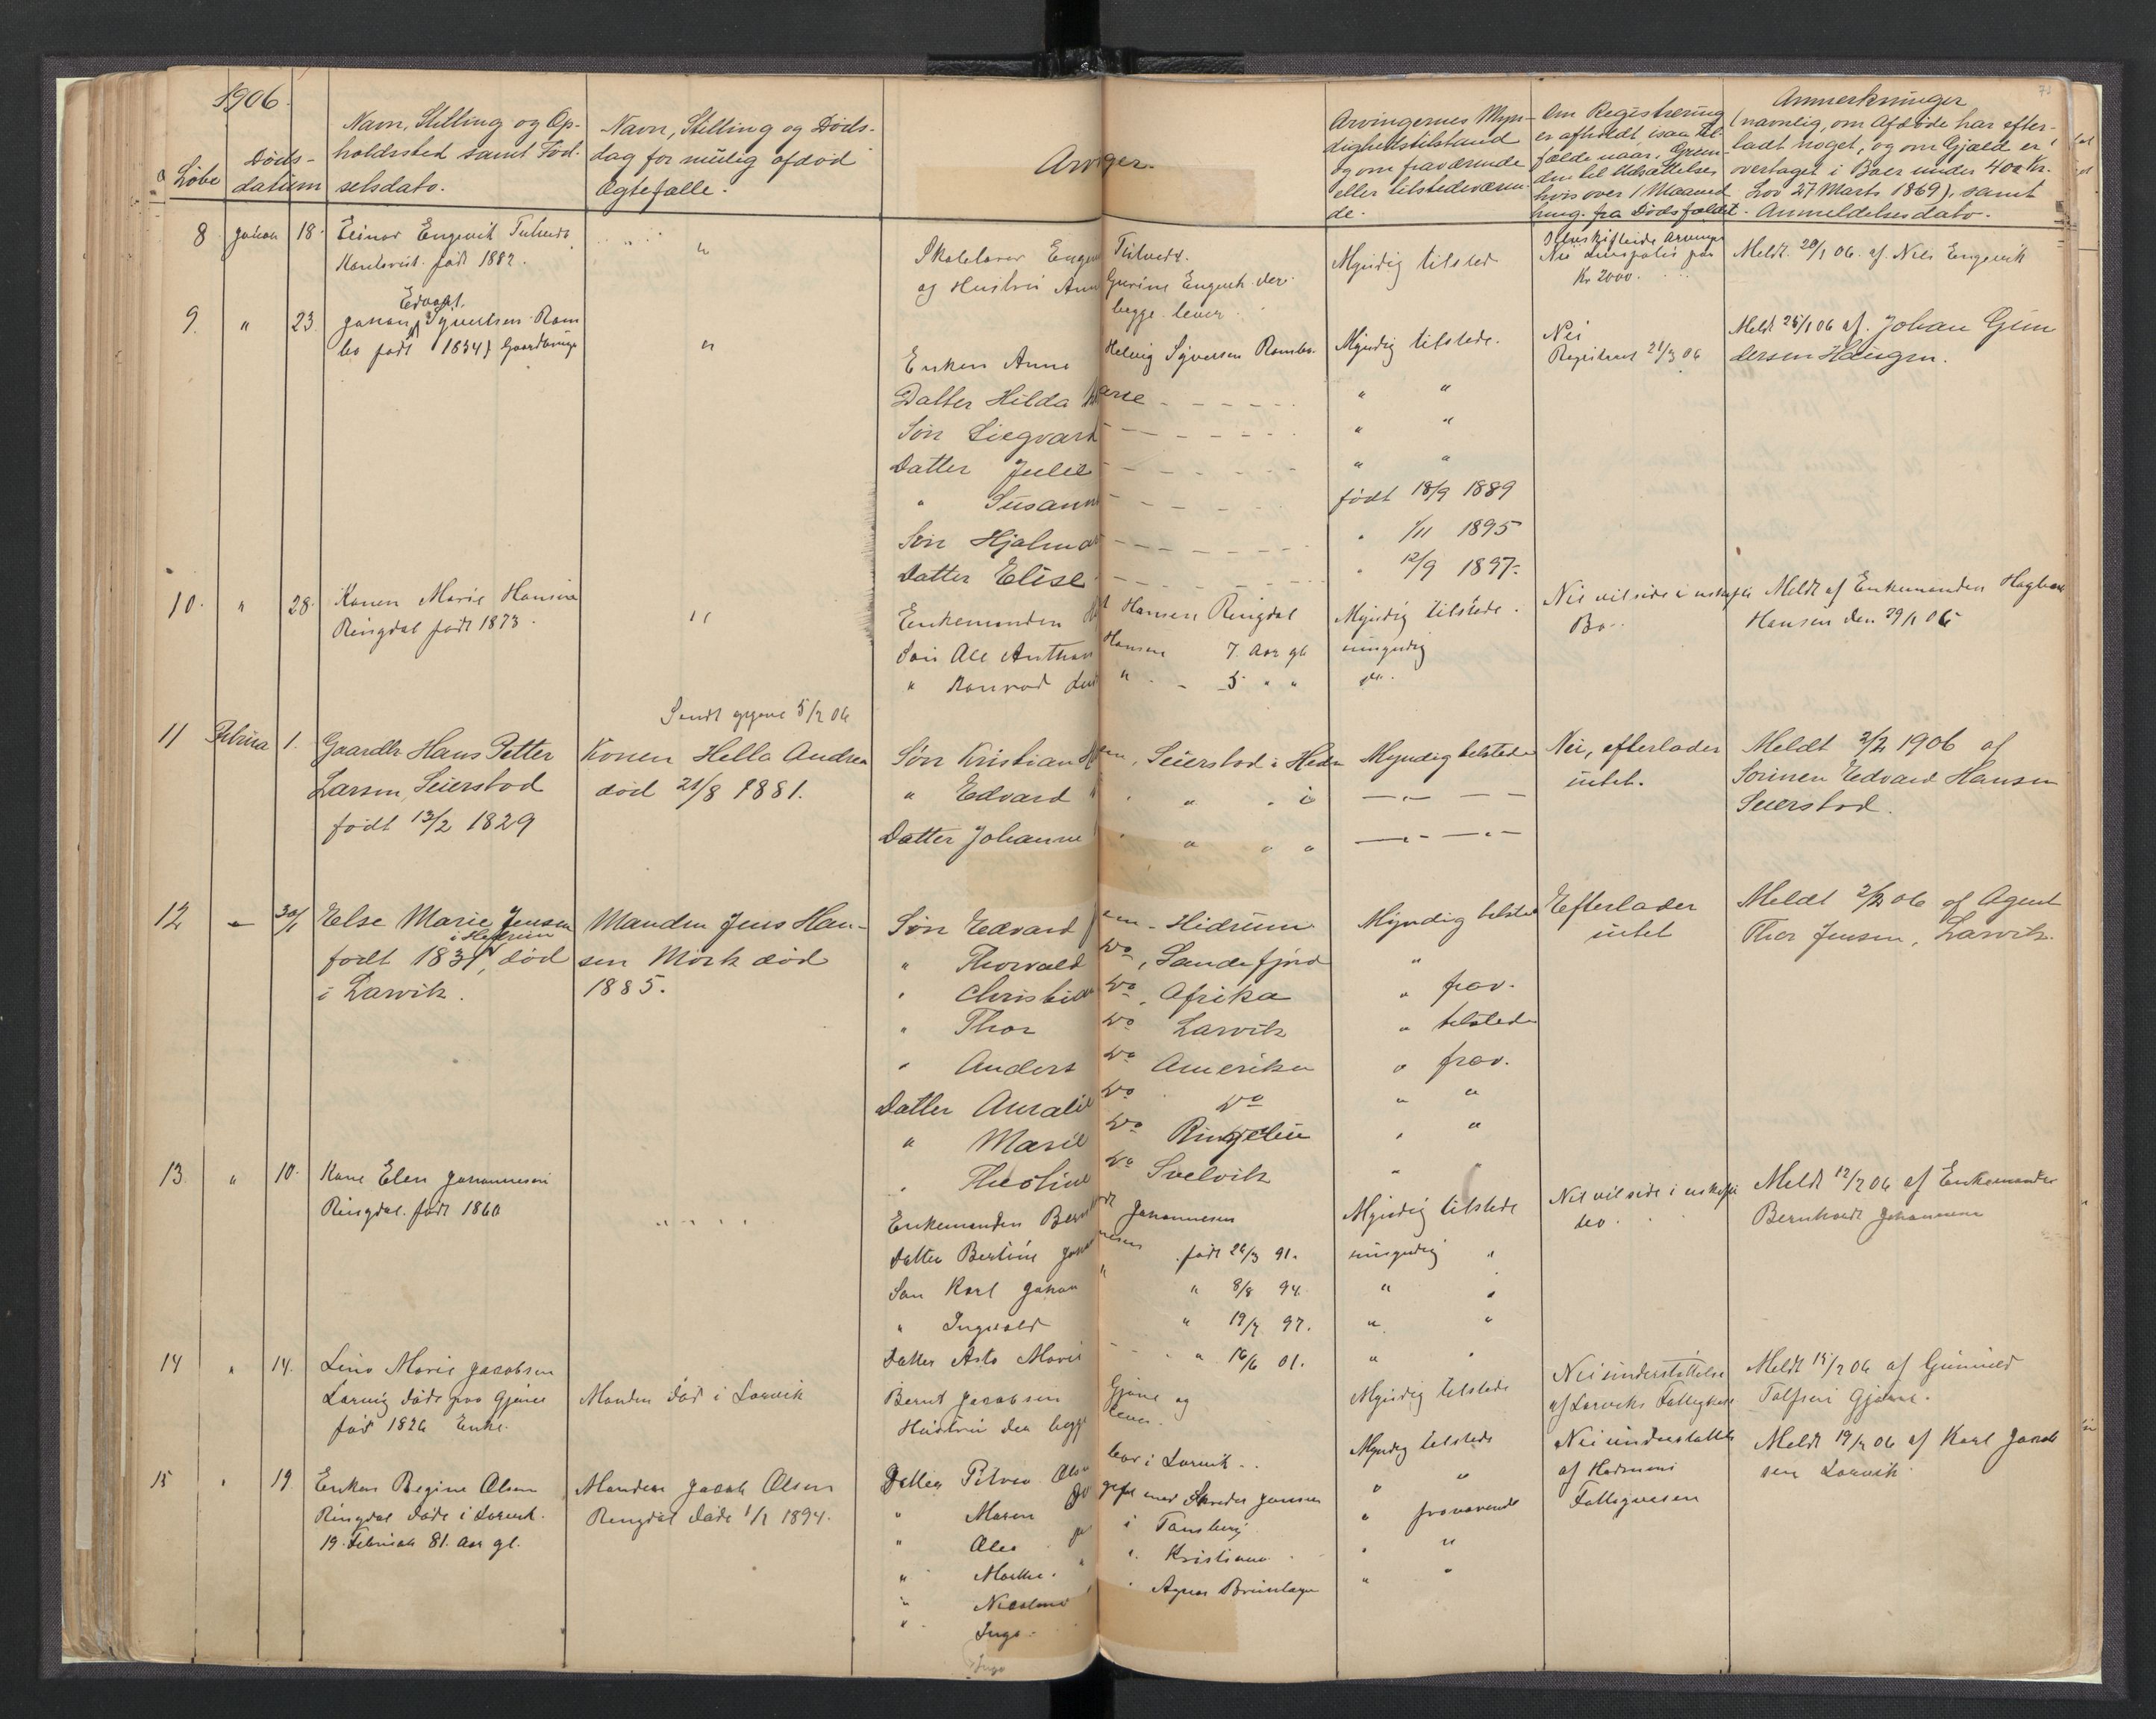 1906.
Løbe
Døds-
datum
Navn, Stilling og Op-
holdssted samt Fød-
selsdato.
Navn, Stilling og Døds-
dag for mulig afdød
Ægtefælle.
Arvinger.
Arvingernes Myn-
dighedstilstand
og om fraværende
eller tilstedeværen-
de.
Om Registrering
er afholdt, isaa Til-
fælde naar. Grun-
den til Udsættelse
hvis over 1 Maaned
hengr. fra Dødsfaldet.
Anmerkninger
(navnlig, om Afdøde har efter-
ladt noget, og om Gjæld er
overtaget i Boer under 400 Kr.
Lov 27 Marts 1869), samt
Anmeldelsesdato.
8 Januar 18. Einar Engevik
født 1882.
"
og Hustru Anne Gurine Engevik der
begge lever
Myndig tilsted
Kr 2000.
Meldt 20/1 06. af Nils Engevik
9. " 23. Johan Edvart Syvertsen Ram
bo født 1854 Gaardbruger
"
Enken Anne Helvig Syversen Rambo. Myndig tilstede.
Datter Hilda Marie " "
Søn Siegvard " "
Datter Julie " "
" Susanne født 18/9 1889
Søn Hjalmar " 1/11 1895
Datter Elise " 12/9 1897.
Nei
Registreret 21/3 06
Meldt 25/1 06 af. Johan Gun
dersen Haugen.
10. " 28. Konen Marie Hansine
Ringdal født 1873.
"
Enkemanden Hansen Ringdal Myndig tilstede.
Søn Ole Anthon Hansen 7 Aar gl umyndig
" Konrad " 5 " " do.
Nei vil side i uskiftet
Bo.
Meldt af Enkemanden
Hansen den 29/1 06
Sendt opgave 5/2 06
11 Februar 1. Gaardbr Hans Petter
Larsen, Seierstad
født 13/2 1829
Konen Hella Andrea
død 21/8 1881.
Søn Kristian Hansen, Seierstad i Hedr Myndig tilstede
" Edvard " " "
Datter Johanne " " "
Nei, efterlader
intet.
Meldt 2/2 1906 af
Sønnen Edvard Hansen
Seierstad.
12 " 30/1 Else Marie Jensen
i Hedrum
født 1831, død
i Larvik.
Manden Jens Han-
sen Mørk død
1885.
Søn Edvard Jensen Hedrum Myndig tilsted
" Thorvald Do, Sandefjord "
" Christian Do, Afrika " frav.
" Thor Do Larvik " tilstede
" Anders Do Amerika " frav.
Datter Amalie Do Do " "
" Marie Do " "
" Theoline Do Svelvik " "
Efterlader
intet
Meldt 2/2 06 af Agent
Thor Jensen, Larvik.
13 " 10. Kone Elen Johannesen
Ringdal. født 1860
Enkemanden Bernhardt Johannesen Myndig tilstede
Datter Bertine Johannesen født 26/3 91. umyndig "
Søn Karl Johan " " 8/8 94. " "
" Ingvald " 19/7 97. " "
Datter Asta Marie " 16/6 01. " "
Nei vil side i uskiftet
bo
Meldt 12/2 06 af Enkemanden
Bernhardt Johannesen
14 " 14. Lina Marie Jacobsen
Larvig døde paa Gjøne
fød 1826 Enke.
Manden død i Larvik
Bernt Jacobsen Gjøne og
Hustru der begge lever.
Myndig tilstede
Nei understøttelse
af Larviks Fattigkasse
Meldt 15/2 06 af Gunnild
Gjønne.
15 " 19 Enken Regine Olsen
Ringdal døde i Larvik.
19. Februar 81. Aar gl.
Manden Jacob Olsen
Ringdal døde 1/1 1894.
Datter Petrea Olsen bor i Larvik. Myndig tilstede
" Maren gift med Skreder Jansen " "
" Olea i Tønsberg " fraværende
" Marthe. " Kristiania " "
" Nicoline " Agnes Brunlagnes " "
" Inga
Inga
Nei understøttet
af Hedrums
Fattigvæsen
Meldt 19/2 06 af Karl Jacob
sen Larvik.